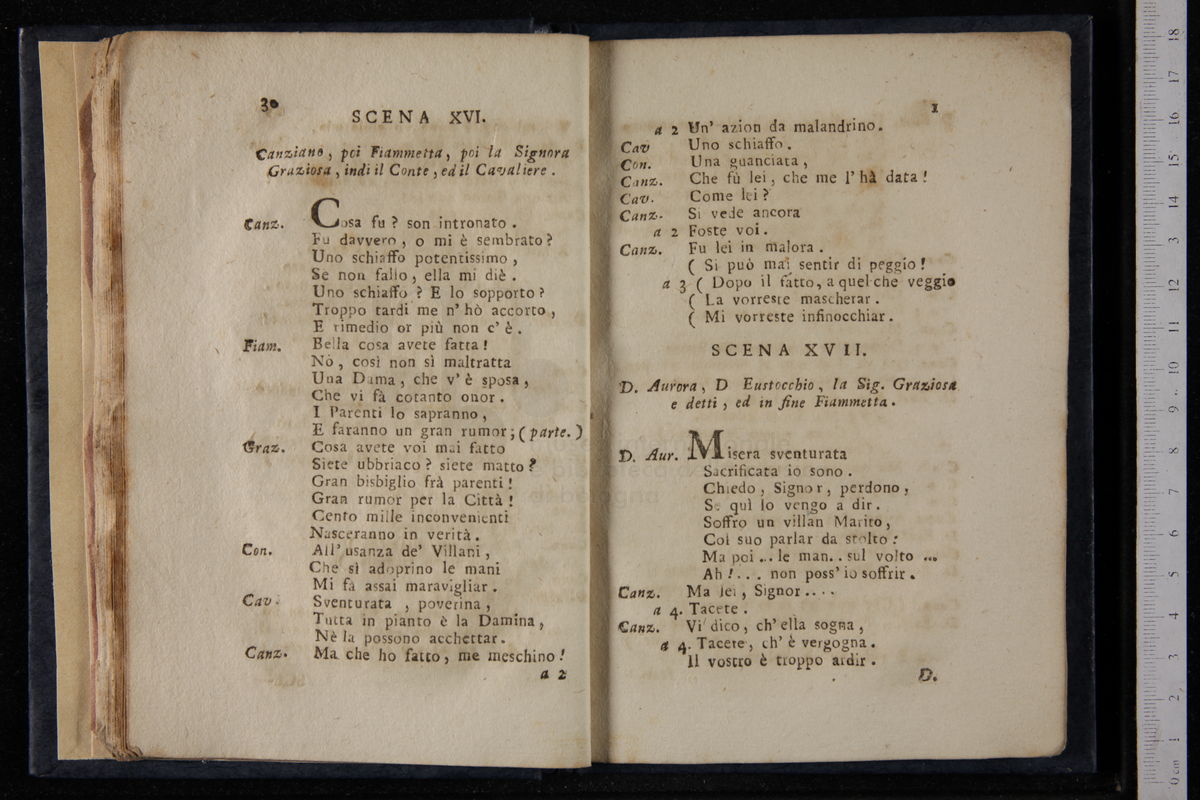 30
SCENA XVI.
Canziano, poi Fiammetta, poi la Signora
Graziosa, indi il Conte, ed il Cavaliere.
Canz. Cosa fu? son intronato.
Fu davvero, o mi è sembrato?
Uno schiaffo potentissimo,
Se non fallo, ella mi diè.
Uno schiaffo? E lo sopporto?
Troppo tardi me n' hò accorto,
E rimedio or più non c' è.
Fiam. Bella cosa avete fatta!
Nò, così non sì maltratta
Una Dama, che v' è sposa,
Che vi fà cotanto onor.
I Parenti lo sapranno,
E faranno un gran rumor; (parte.)
Graz. Cosa avete voi mai fatto
Siete ubbriaco? siete matto?
Gran bisbiglio frà parenti!
Gran rumor per la Città!
Cento mille inconvenienti
Nasceranno in verità.
Con. All' usanza de' Villani,
Che sì adoprino le mani
Mi fà assai maravigliar.
Cav. Sventurata, poverina,
Tutta in pianto è la Damina,
Nè la possono acchettar.
Canz. Ma che ho fatto, me meschino!
a 2
1
a 2 Un' azion da malandrino.
Cav Uno schiaffo.
Con. Una guanciata,
Canz. Che fù lei, che me l' hà data!
Cav. Come lei?
Canz. Si vede ancora
a 2 Foste voi.
Canz. Fu lei in malora.
( Si può mai sentir di peggio!
a 3 ( Dopo il fatto, a quel che veggio
( La vorreste mascherar.
( Mi vorreste infinocchiar.
SCENA XVII.
D. Aurora, D Eustocchio, la Sig. Graziosa
e detti, ed in fine Fiammetta.
D. Aur. Misera sventurata
Sacrificata io sono.
Chiedo, Signor, perdono,
Se quì lo vengo a dir.
Soffro un villan Marito,
Col suo parlar da stolto:
Ma poi ... le man.. sul volto ...
Ah!... non poss' io soffrir.
Canz. Ma lei, Signor....
a 4. Tacete.
Canz. Vi dico, ch' ella sogna,
a 4. Tacete, ch' è vergogna.
Il vostro è troppo ardir.
D.